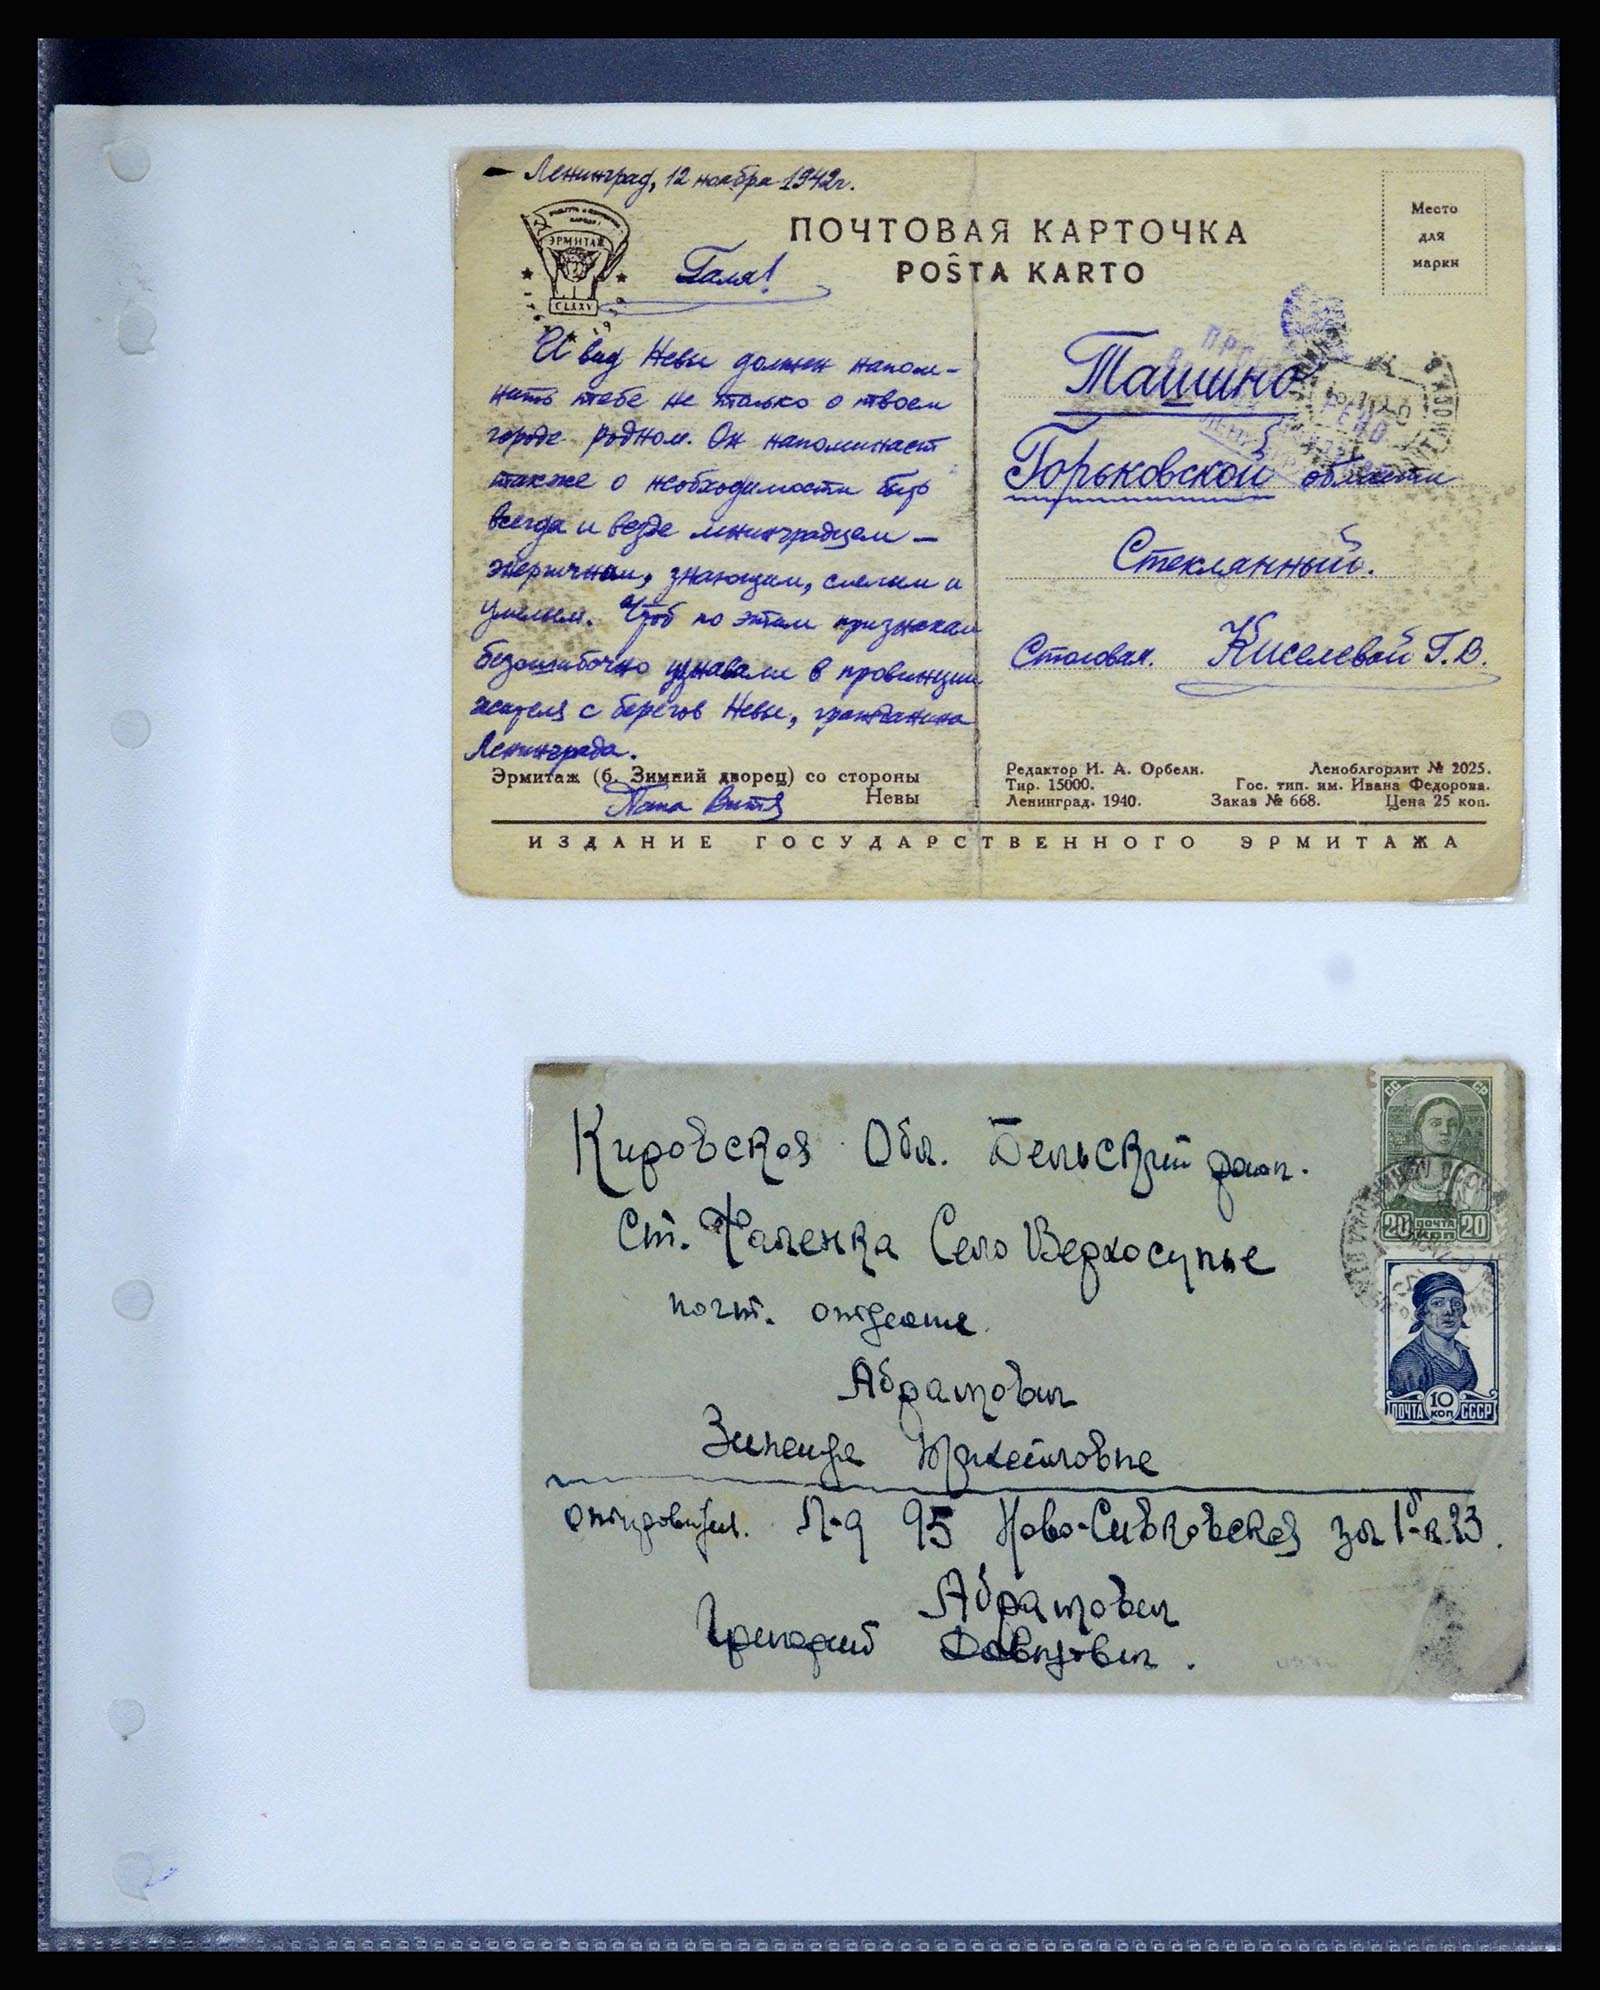 Ленинград, 12 ноября 1942г.
ЭРМИТАЖ
CLXXV
ПОЧТОВАЯ КАРТОЧКА
POŜTA KARTO
Место
для
марки
Галя!
И вид Невы должен напом-
нить тебе не только о твоем
городе родном. Он напоминает
также о необходимости быть
всегда и везде ленинградцем —
энергичным, знающим, смелым и
умелым. Чтоб по этим признакам
безошибочно узнавали в провинции
жителя с берегов Невы, гражданина
Ленинграда.
Папа Витя
Эрмитаж (б. Зимний дворец) со стороны
Невы
Ташино
Горьковской области
Стеклянный.
Столовая. Киселевой Г.В.
Редактор И. А. Орбели. Леноблгорлит № 2025.
Тир. 15000. Гос. тип. им. Ивана Федорова.
Ленинград. 1940. Заказ № 668. Цена 25 коп.
ИЗДАНИЕ ГОСУДАРСТВЕННОГО ЭРМИТАЖА
Кировская Обл. Бельский район.
Ст. Фаленка Село Верхосунье
почт. отделение
Абрамович
Зинаиде Михайловне
Л-д 95 Ново-Сивковская
Абрамович
Григорий Давидович.
СС СР
20 ПОЧТА 20
КОП
10
ПОЧТА КОП СССР